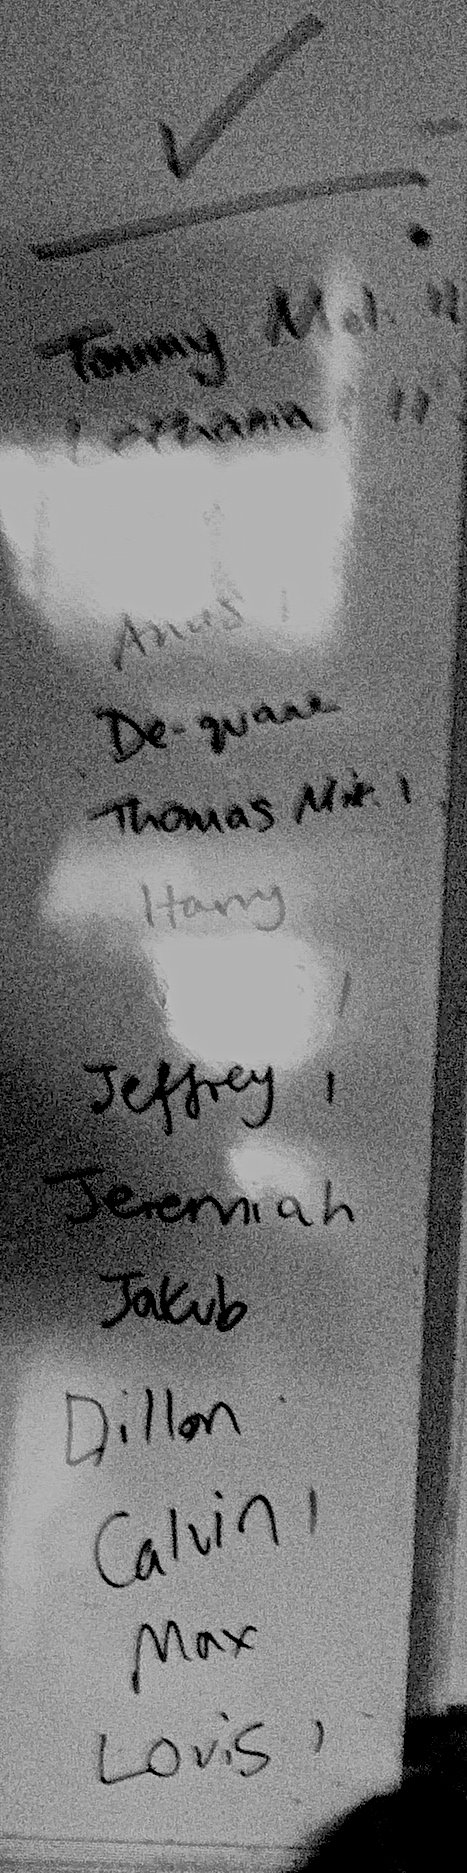 ✓
Tommy
Anus I
De-quane
Thomas I
Harry
I
Jeffrey I
Jeremiah
Jakub
Dillon
Calvin I
Max
Lovis I